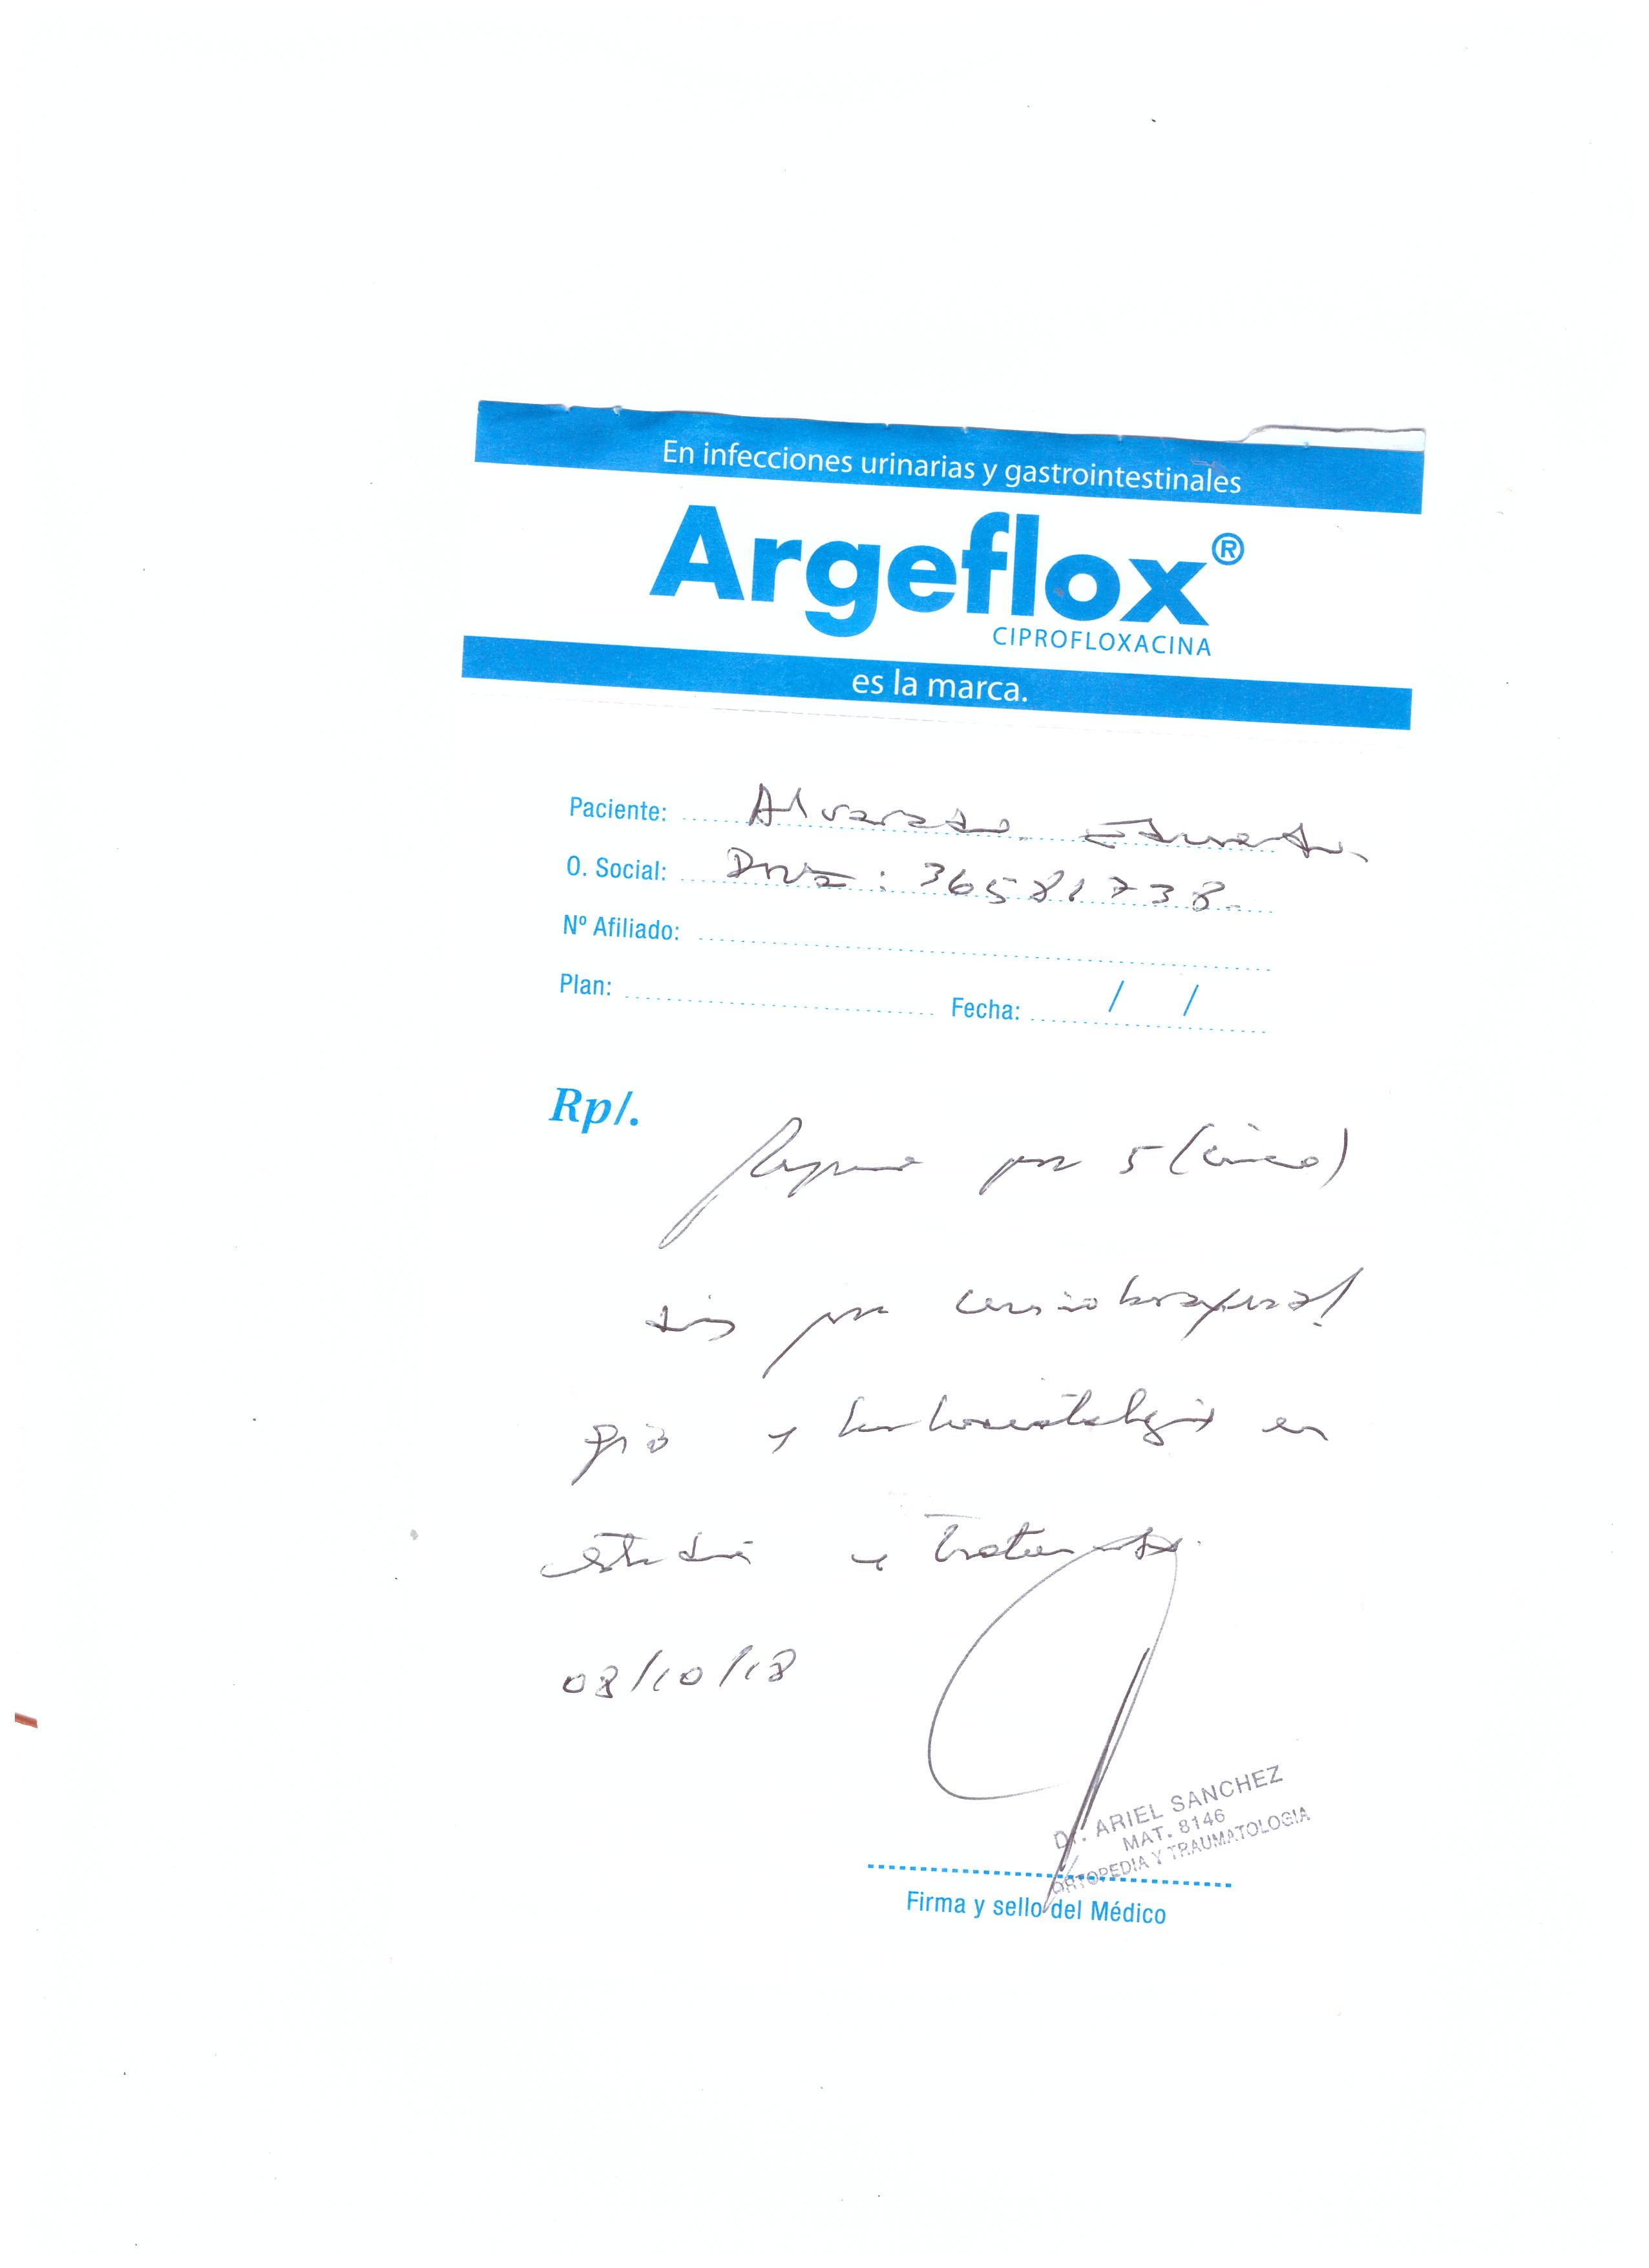 En infecciones urinarias y gastrointestinales
Argeflox®
CIPROFLOXACINA
es la marca.
Paciente: Alvarado Eduardo
O. Social: DNI: 36581738.
Nº Afiliado:
Plan: Fecha: / /
Rp/.
por 5 (cinco)
días por cervicobraquial
gia y lumbociatalgia en
estudio y tratamiento.
08/10/18
Dr. ARIEL SANCHEZ
MAT. 8146
ORTOPEDIA Y TRAUMATOLOGIA
Firma y sello del Médico